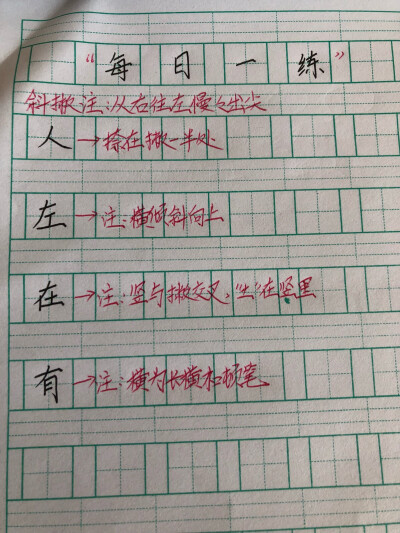 “每日一练”
斜撇注：从右往左慢慢出尖
人→捺在撇一半处
左→注：横倾斜向上
在→注：竖与撇交叉，“土”在竖里
有→注：横为长横和顿笔